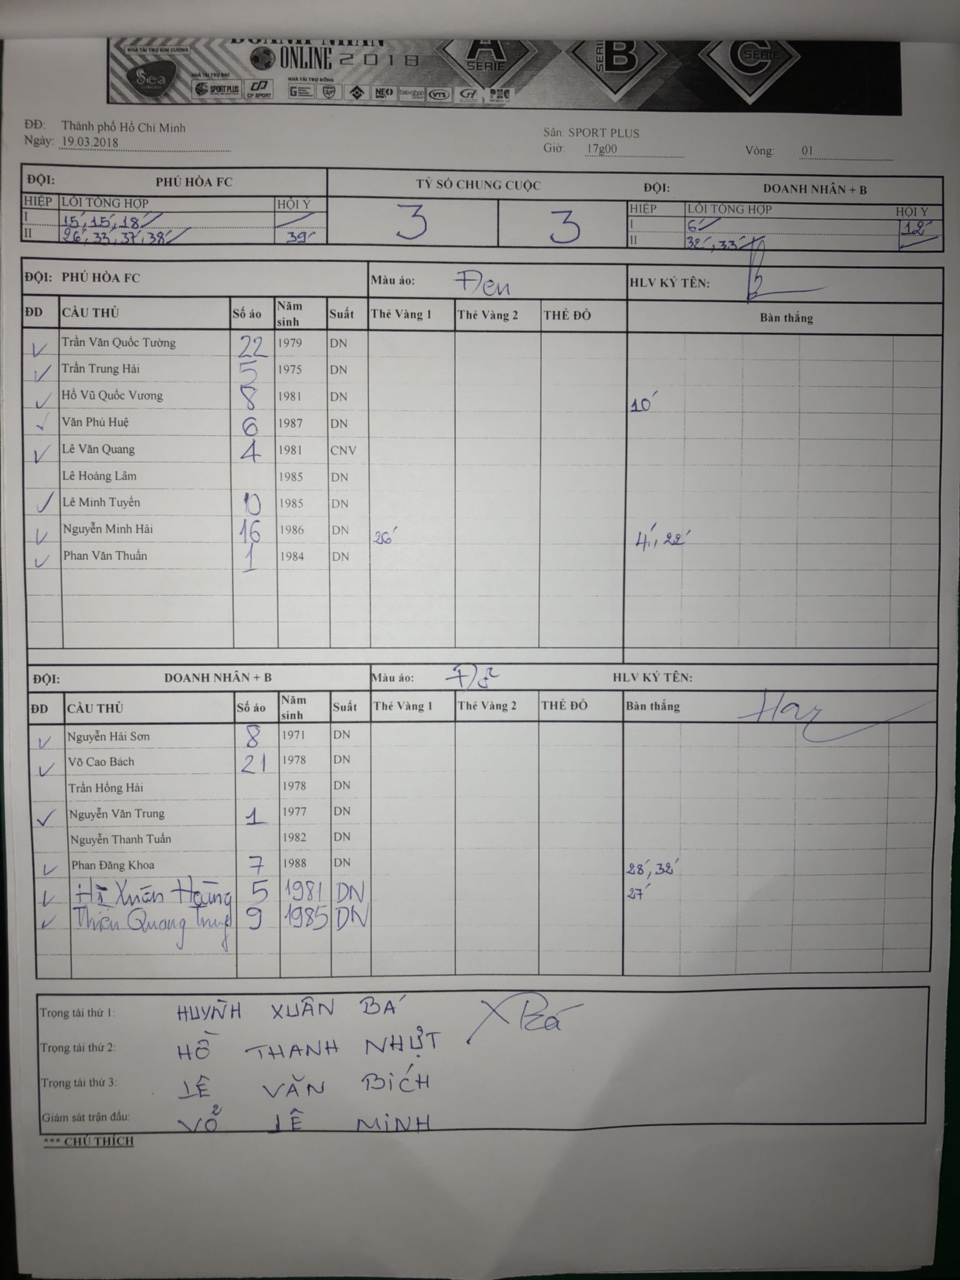 DOANH NHÂN
ONLINE 2018
NHÀ TÀI TRỢ KIM CƯƠNG
Sea
NHÀ TÀI TRỢ BẠC
SPORT PLUS
CP SPORT
NHÀ TÀI TRỢ ĐỒNG
NEO
VTS
A SERIE
SERIE B
C SERIE
ĐĐ: Thành phố Hồ Chí Minh Sân: SPORT PLUS
Ngày: 19.03.2018 Giờ: 17g00 Vòng: 01
ĐỘI: PHÚ HÒA FC TỶ SỐ CHUNG CUỘC ĐỘI: DOANH NHÂN + B
HIỆP LỖI TỔNG HỢP HỘI Ý 3 3 HIỆP LỖI TỔNG HỢP HỘI Ý
I 15', 15', 18' I 6' 12'
II 26', 33', 37', 38' 39' II 32', 33'
ĐỘI: PHÚ HÒA FC Màu áo: Đen HLV KÝ TÊN:
ĐD CẦU THỦ Số áo Năm sinh Suất Thẻ Vàng 1 Thẻ Vàng 2 THẺ ĐỎ Bàn thắng
Trần Văn Quốc Tường 22 1979 DN
Trần Trung Hải 5 1975 DN
Hồ Vũ Quốc Vương 8 1981 DN 10'
Văn Phú Huệ 6 1987 DN
Lê Văn Quang 4 1981 CNV
Lê Hoàng Lâm 1985 DN
Lê Minh Tuyến 10 1985 DN
Nguyễn Minh Hải 16 1986 DN 26' 4', 22'
Phan Văn Thuấn 1 1984 DN
ĐỘI: DOANH NHÂN + B Màu áo: Đỏ HLV KÝ TÊN:
ĐD CẦU THỦ Số áo Năm sinh Suất Thẻ Vàng 1 Thẻ Vàng 2 THẺ ĐỎ Bàn thắng
Nguyễn Hải Sơn 8 1971 DN
Võ Cao Bách 21 1978 DN
Trần Hồng Hải 1978 DN
Nguyễn Văn Trung 1 1977 DN
Nguyễn Thanh Tuấn 1982 DN
Phan Đăng Khoa 7 1988 DN 28', 32'
Xuân Hoàng 5 1981 DN 27'
Quang Trung 9 1985 DN
Trọng tài thứ 1: HUỲNH XUÂN BÁ
Trọng tài thứ 2: HỒ THANH NHỰT
Trọng tài thứ 3: LÊ VĂN BÍCH
Giám sát trận đấu: VÕ LÊ MINH
*** CHÚ THÍCH